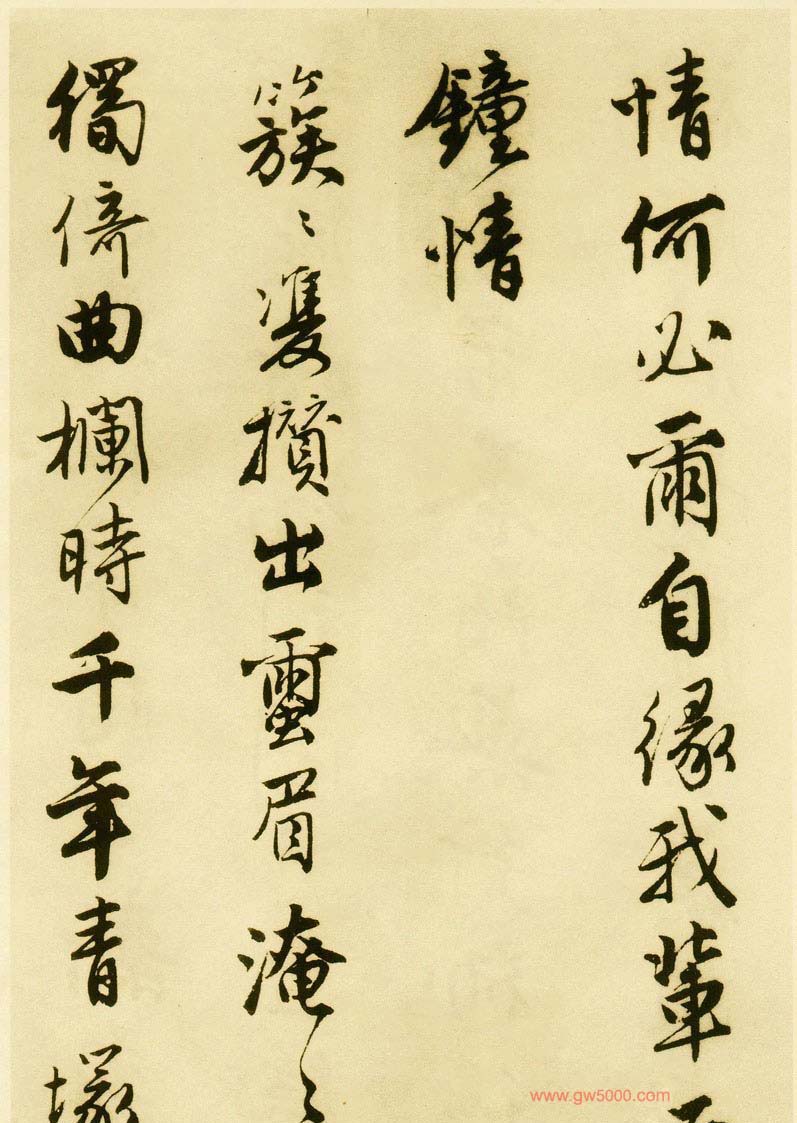 情何必爾自緣我輩
鐘情
簇〻雙攢出蠒眉淹〻
獨倚曲欄時千年青塚
www.gw5000.com